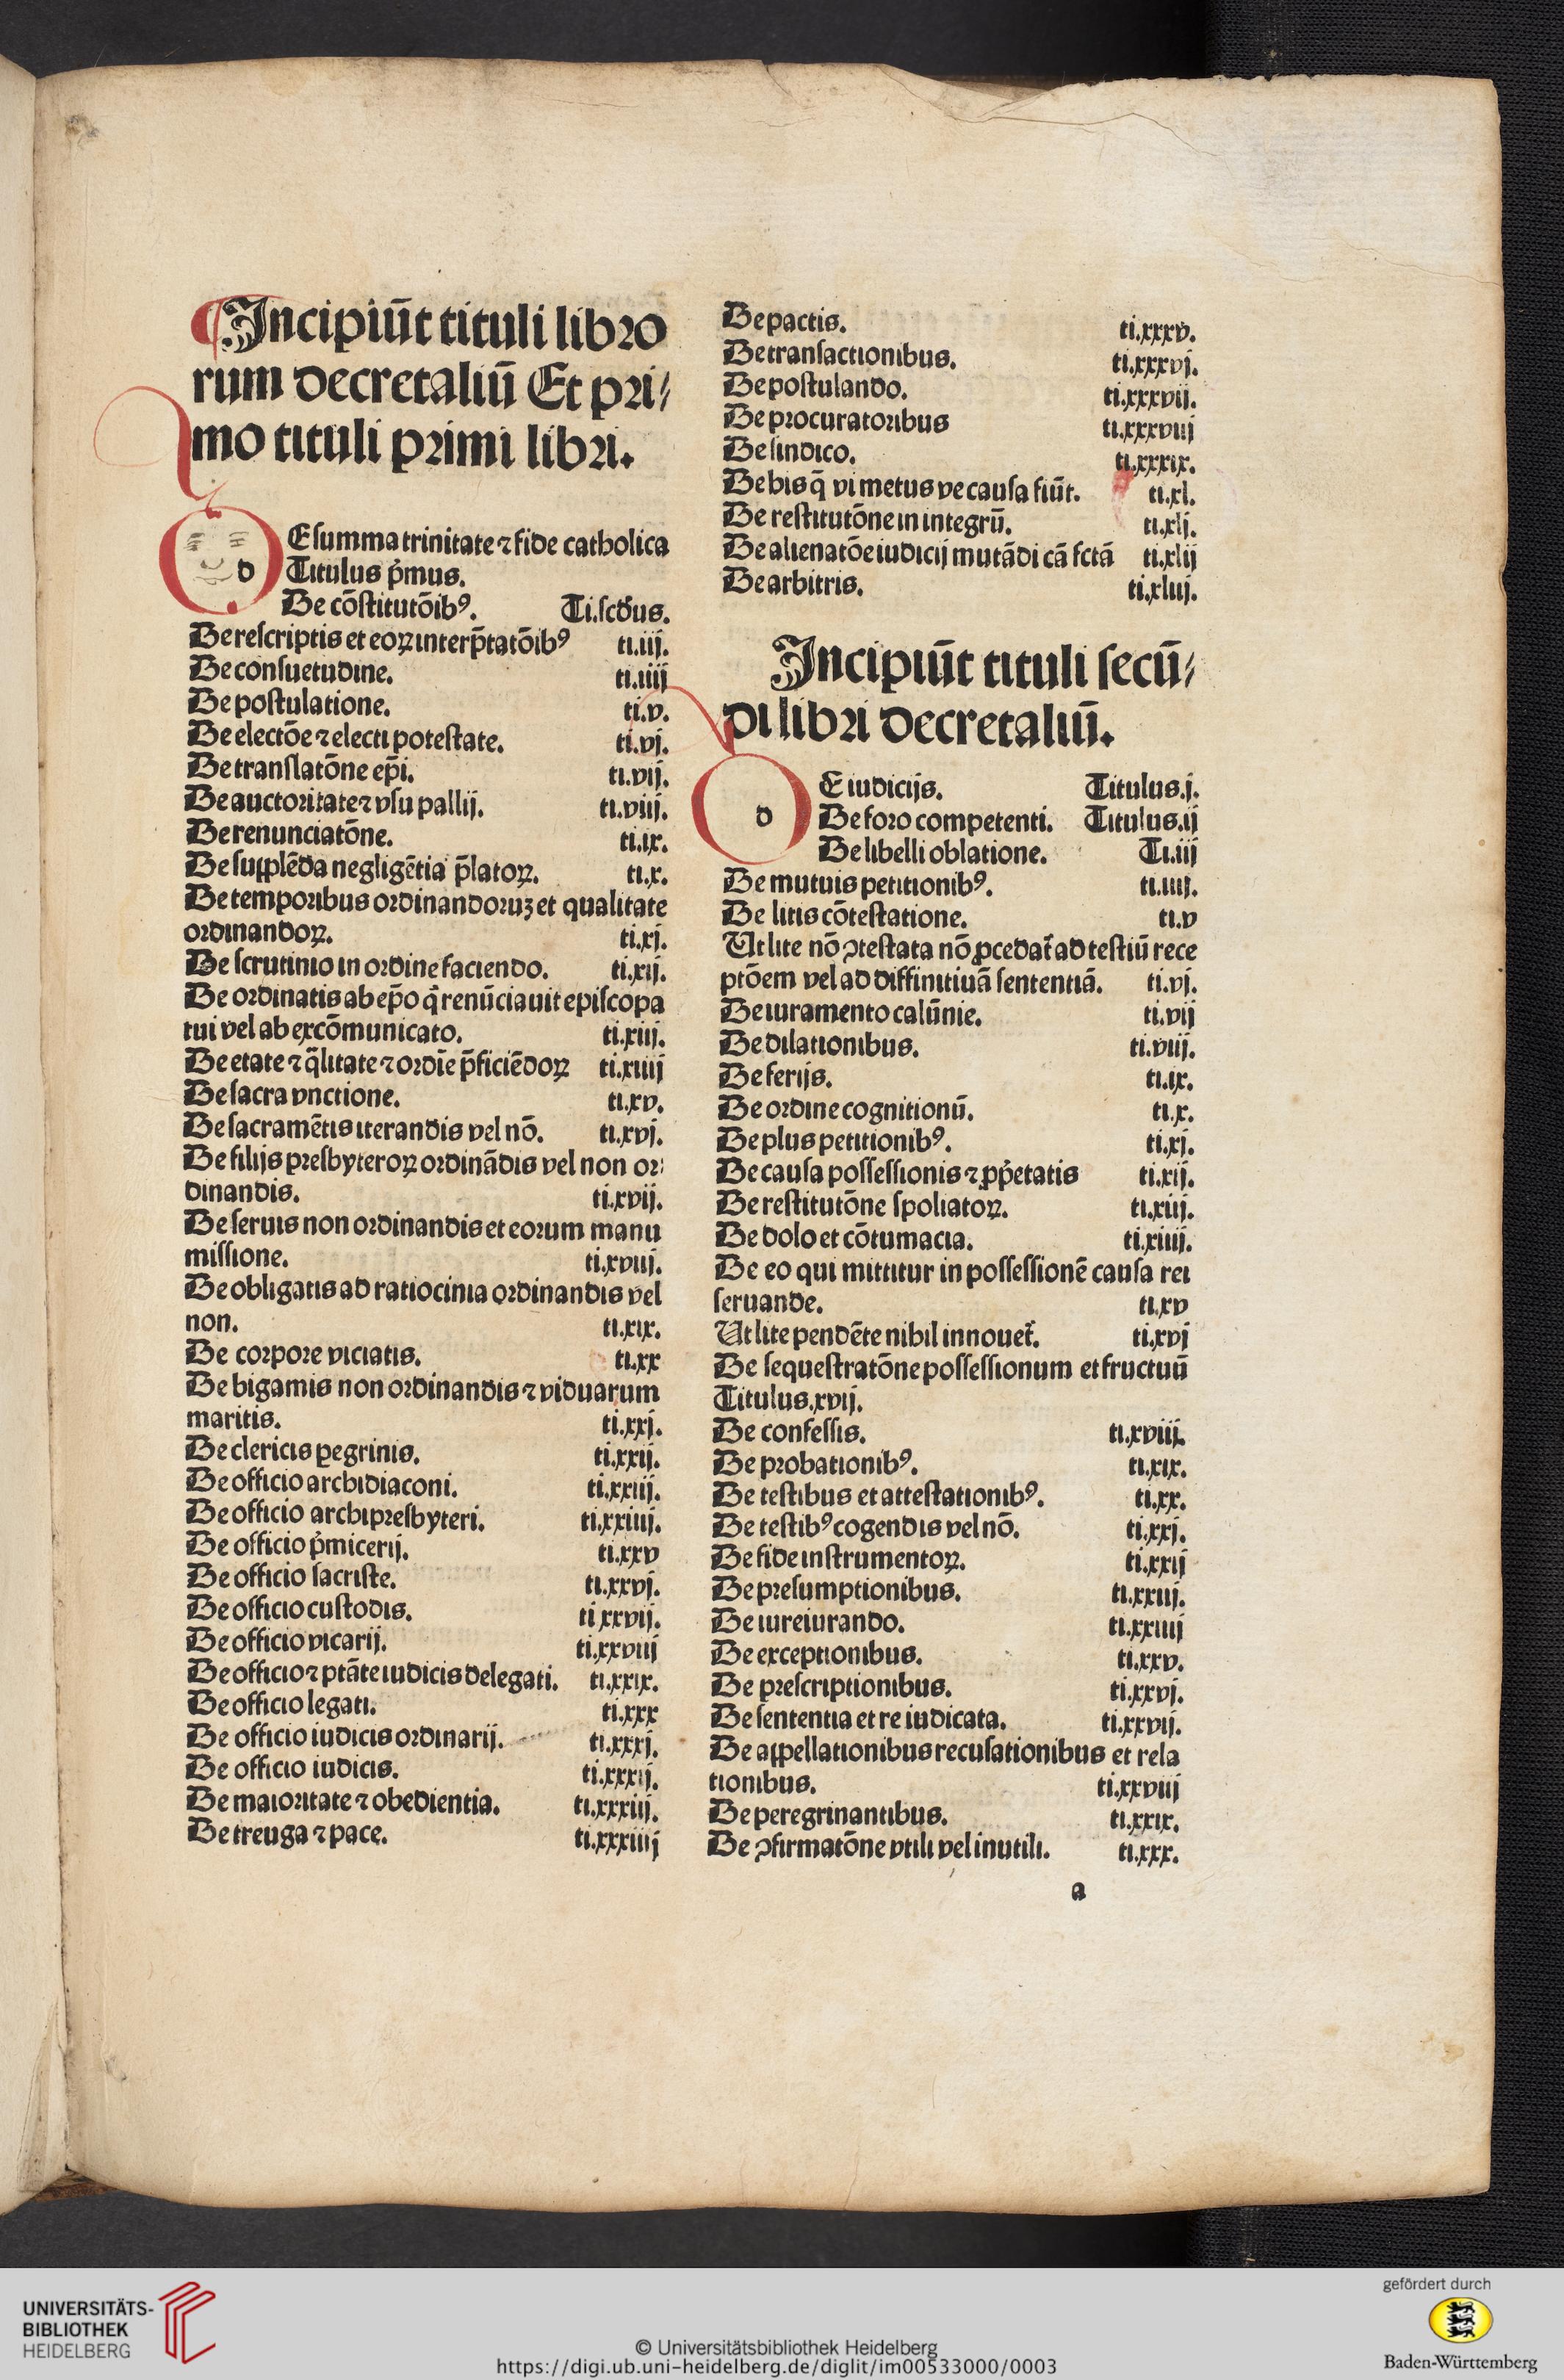 ¶Incipiu̅t tituli libro
rum decretaliu̅ Et pri⸗
mo tituli primi libri.
d
E summa trinitate ⁊ fide catholica
Titulus pͥmus.
De co̅stituto̅ibꝰ. Ti.scd̕us.
De rescriptis et eoꝝ interp̅tato̅ibꝰ ti.iij.
De consuetudine. ti.iiij
De postulatione. ti.v.
De electo̅e ⁊ electi potestate. ti.vj.
De translato̅ne ep̅i. ti.vij.
De auctoritate ⁊ vsu pallij. ti.viij.
De renunciato̅ne. ti.ix.
De supple̅da neglige̅tia p̅latoꝝ. ti.x.
De temporibus ordinandoruʒ et qualitate
ordinandoꝝ. ti.xj.
De scrutinio in ordine faciendo. ti.xij.
De ordinatis ab ep̅o qͥ renu̅ciauit episcopa
tui vel ab exco̅municato. ti.xiij.
De etate ⁊ q̅litate ⁊ ordi̅e p̅ficie̅doꝝ ti.xiiij
De sacra vnctione. ti.xv.
De sacrame̅tis iterandis vel no̅. ti.xvj.
De filijs presbyteroꝝ ordina̅dis vel non or⸗
dinandis. ti.xvij.
De seruis non ordinandis et eorum manu
missione. ti.xviij.
De obligatis ad ratiocinia ordinandis vel
non. ti.xix.
De corpore viciatis. ti.xx
De bigamis non ordinandis ⁊ viduarum
maritis. ti.xxj.
De clericis ꝑegrinis. ti.xxij.
De officio archidiaconi. ti.xxiij.
De officio archipresbyteri. ti.xxiiij.
De officio pͥmicerij. ti.xxv
De officio sacriste. ti.xxvj.
De officio custodis. ti xxvij.
De officio vicarij. ti.xxviij
De officio ⁊ pta̅te iudicis delegati. ti.xxix.
De officio legati. ti.xxx
De officio iudicis ordinarij. ti.xxxj.
De officio iudicis. ti.xxxij.
De maioritate ⁊ obedientia. ti.xxxiij.
De treuga ⁊ pace. ti.xxxiiij
De pactis. ti.xxxv.
De transactionibus. ti.xxxvj.
De postulando. ti.xxxvij.
De procuratoribus ti.xxxviij
De sindico. ti.xxxix.
De his q̅ vi metus ve causa fiu̅t. ti.xl.
De restituto̅ne in integru̅. ti.xlj.
De alienato̅e iudicij muta̅di ca̅ fcta̅ ti.xlij
De arbitris. ti.xliij.
Incipiu̅t tituli secu̅⸗
di libri decretaliu̅.
d
E iudicijs. Titulus.j.
De foro competenti. Titulus.ij
De libelli oblatione. Ti.iij
De mutuis petitionibꝰ. ti.iiij.
De litis co̅testatione. ti.v
Ut lite no̅ ꝯtestata no̅ ꝓcedat̕ ad testiu̅ rece
pto̅em vel ad diffinitiua̅ sententia̅. ti.vj.
De iuramento calu̅nie. ti.vij
De dilationibus. ti.viij.
De ferijs. ti.ix.
De ordine cognitionu̅. ti.x.
De plus petitionibꝰ. ti.xj.
De causa possessionis ⁊ ꝓpͥetatis ti.xij.
De restituto̅ne spoliatoꝝ. ti.xiij.
De dolo et co̅tumacia. ti.xiiij.
De eo qui mittitur in possessione̅ causa rei
seruande. ti.xv
Ut lite pende̅te nihil innouet̕. ti.xvj
De sequestrato̅ne possessionum et fructuu̅
Titulus.xvij.
De confessis. ti.xviij.
De probationibꝰ. ti.xix.
De testibus et attestationibꝰ. ti.xx.
De testibꝰ cogendis vel no̅. ti.xxj.
De fide instrumentoꝝ. ti.xxij
De presumptionibus. ti.xxiij.
De iureiurando. ti.xxiiij
De exceptionibus. ti.xxv.
De prescriptionibus. ti.xxvj.
De sententia et re iudicata. ti.xxvij.
De appellationibus recusationibus et rela
tionibus. ti.xxviij
De peregrinantibus. ti.xxix.
De ꝯfirmato̅ne vtili vel inutili. ti.xxx.
a
UNIVERSITÄTS-
BIBLIOTHEK
HEIDELBERG
© Universitätsbibliothek Heidelberg
https://digi.ub.uni-heidelberg.de/diglit/im00533000/0003
gefördert durch
Baden-Württemberg